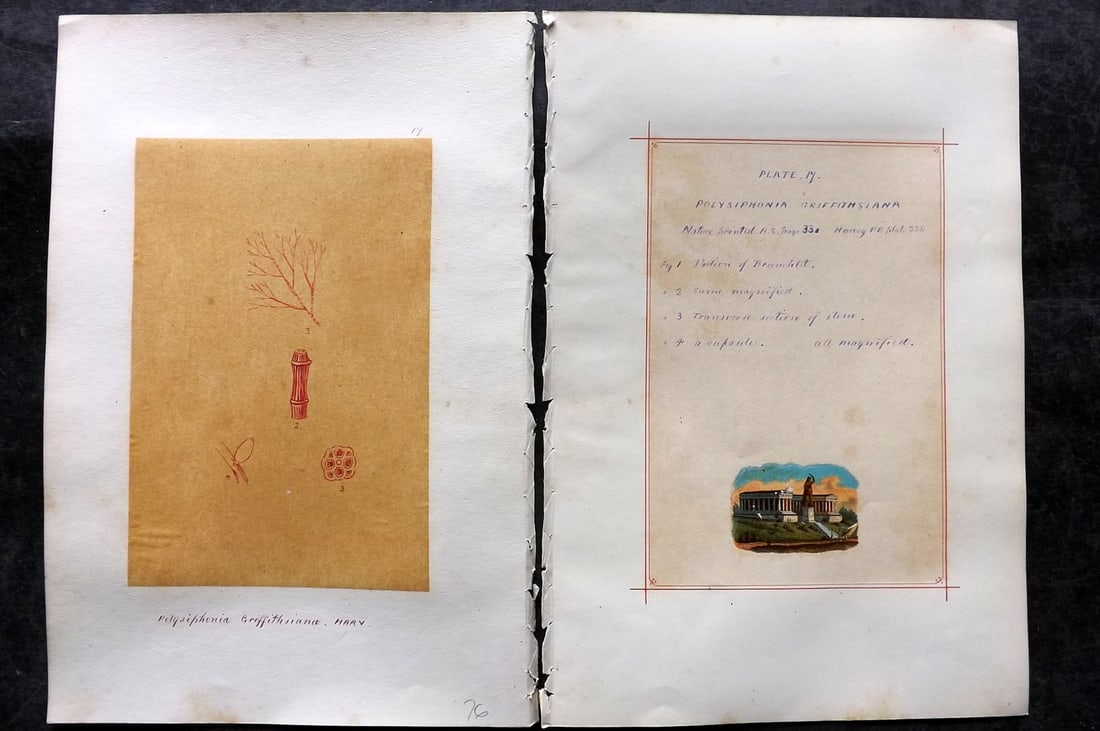 17
1
2
4
3
Polysiphonia Griffithsiana. HARV.
76
PLATE. 17.
POLYSIPHONIA GRIFFITHSIANA
Nature printed B.S. Page 330 Harvey P.B. plate 228
Fig 1 Portion of Branchlet.
" 2 Same magnified.
" 3 Transverse section of stem.
" 4 a capsule. all magnified.